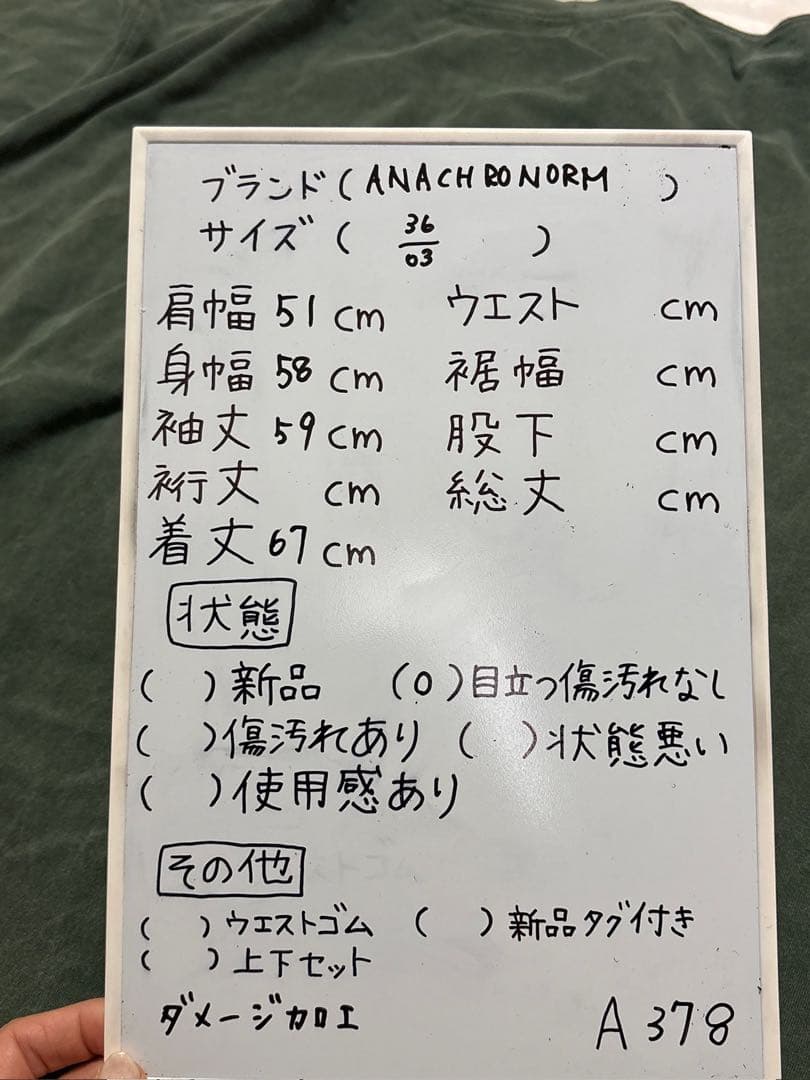 ブランド(ANACHRONORM)
サイズ( 36/03 )
肩幅 51 cm ウエスト cm
身幅 58 cm 裾幅 cm
袖丈 59 cm 股下 cm
裄丈 cm 総丈 cm
着丈 67 cm
状態
( )新品 (O)目立つ傷汚れなし
( )傷汚れあり ( )状態悪い
( )使用感あり
その他
( )ウエストゴム ( )新品タグ付き
( )上下セット
ダメージ加工 A378